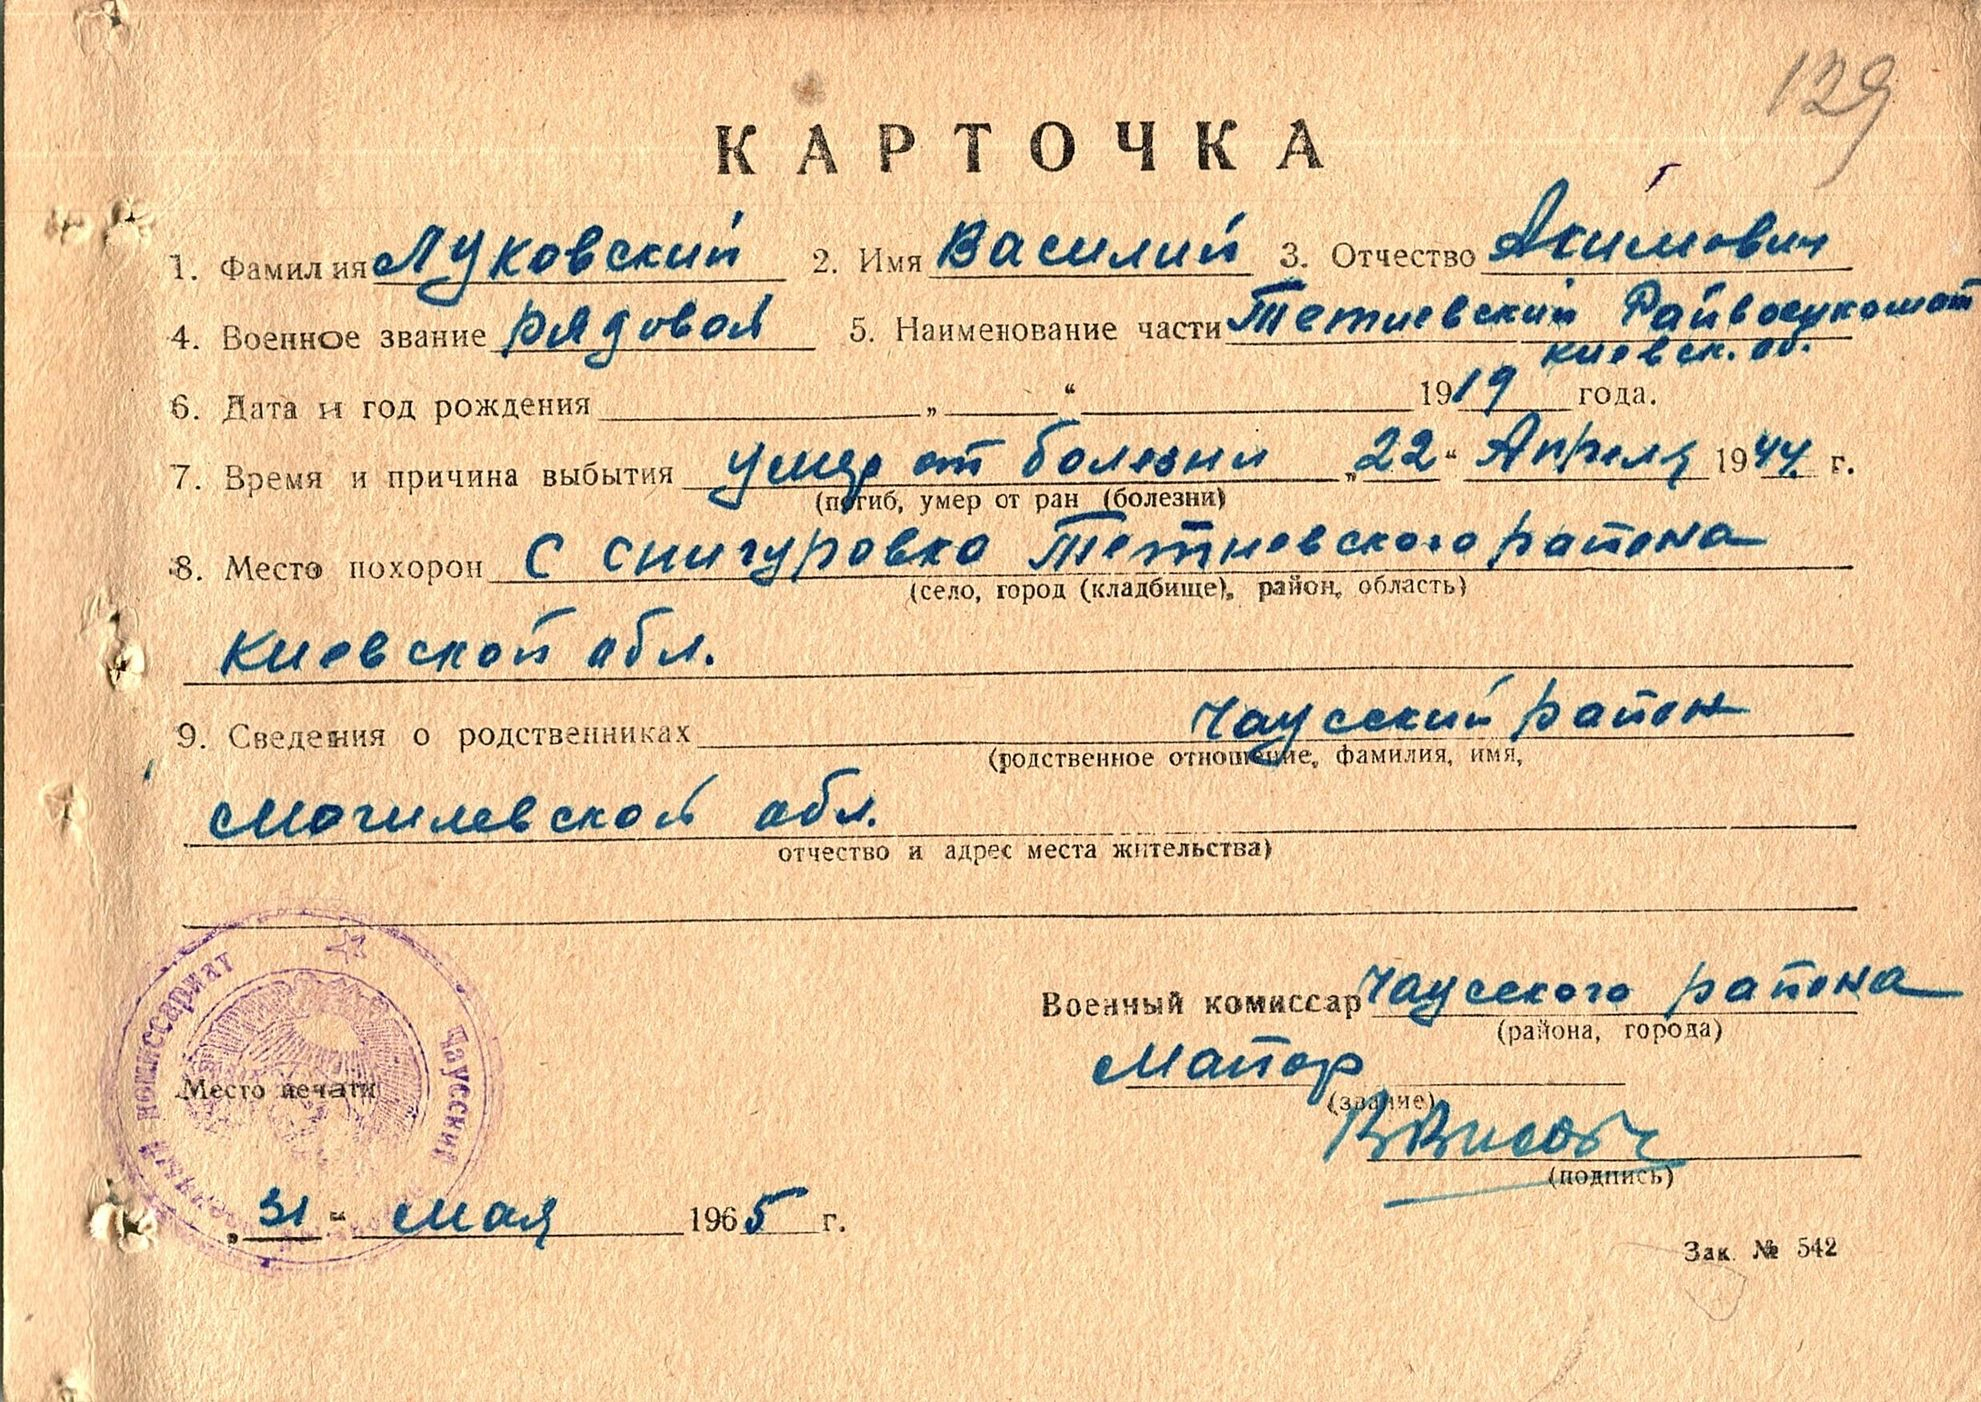 129
КАРТОЧКА
1. Фамилия Луковский 2. Имя Василий 3. Отчество Акимович
4. Военное звание рядовой 5. Наименование части Тетиевский Райвоенкомат
Киевск. об.
6. Дата и год рождения „ “ 1919 года.
7. Время и причина выбытия умер от болезни „22“ Апреля 1944 г.
(погиб, умер от ран (болезни)
8. Место похорон С Снигуровка Тетиевского района
(село, город (кладбище), район, область)
Киевской обл.
9. Сведения о родственниках Чаусский район
(родственное отношение, фамилия, имя,
Могилевской обл.
отчество и адрес места жительства)
Военный комиссар Чаусского района
(района, города)
Майор
(звание)
(подпись)
Место печати
комиссариат
Чаусский
„31“ мая 1965 г.
Зак. № 542